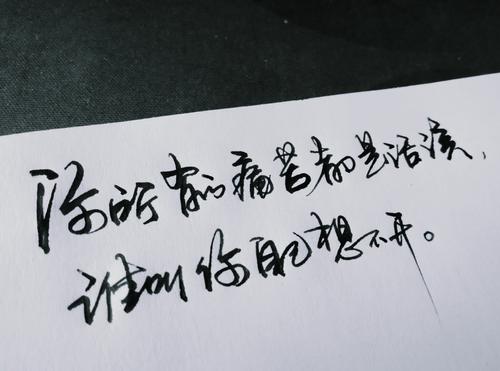 你所有的痛苦都是活该，
谁叫你自己想不开。